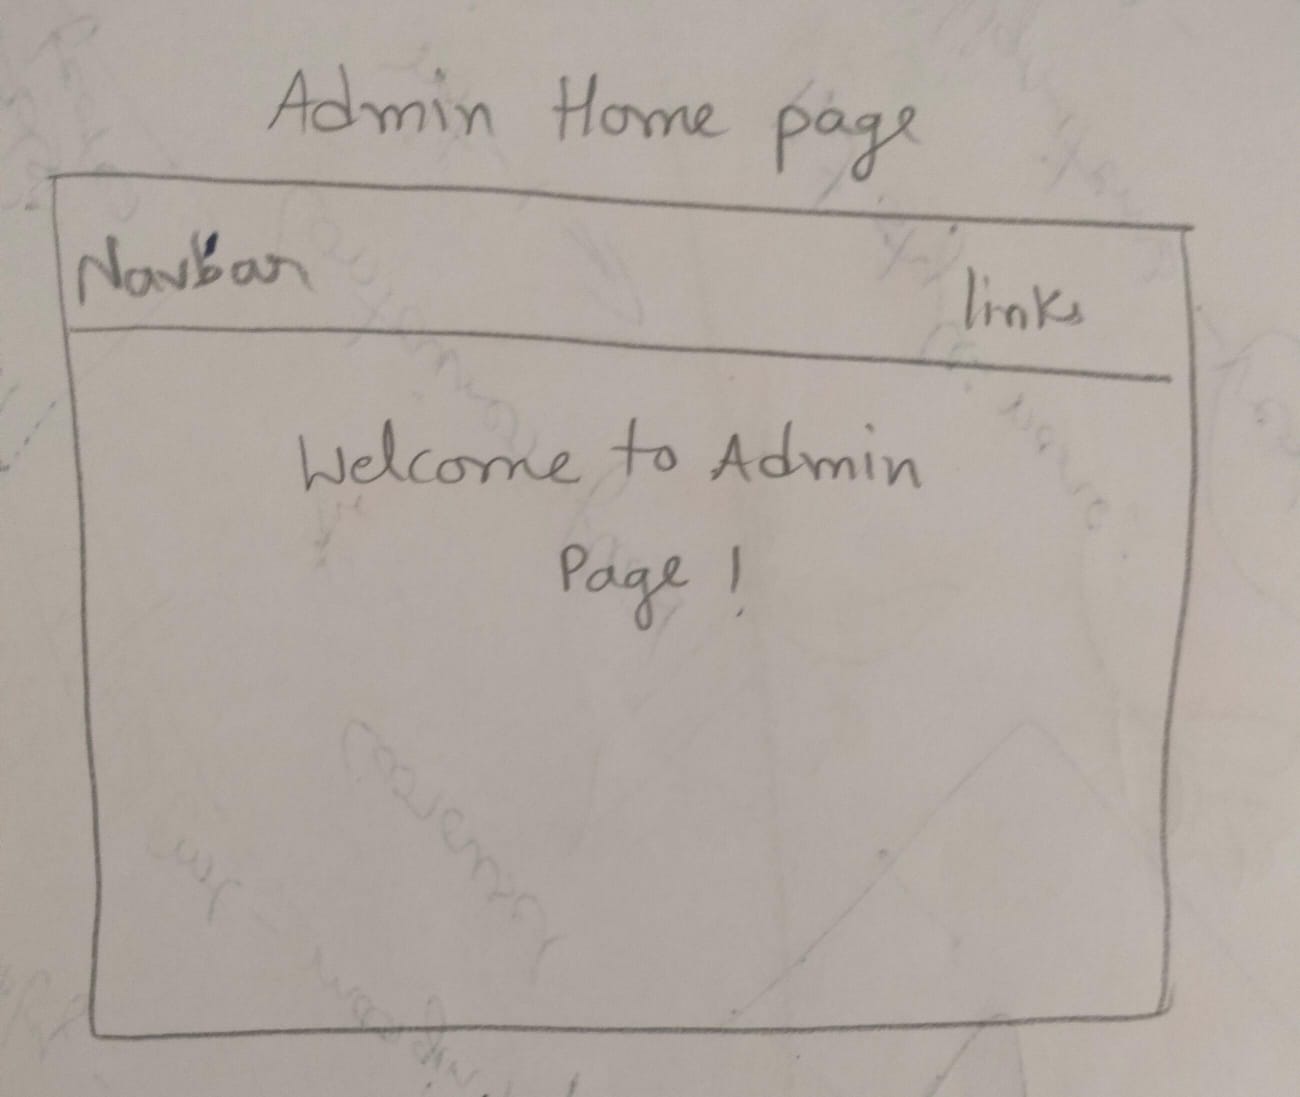 Admin Home page
Navbar
links
Welcome to Admin
Page !